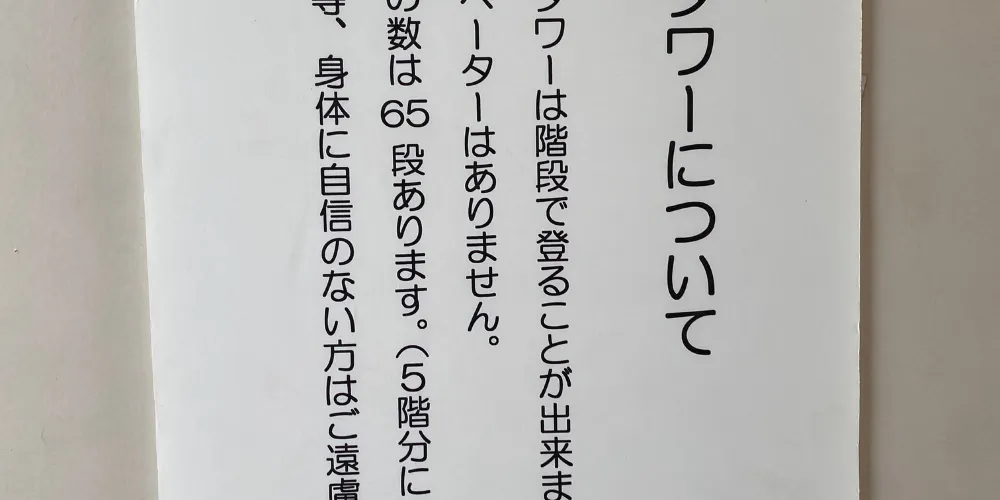 ワーについて
タワーは階段で登ることが出来ま
ベーターはありません。
の数は 65 段あります。(5階分に
等、身体に自信のない方はご遠慮